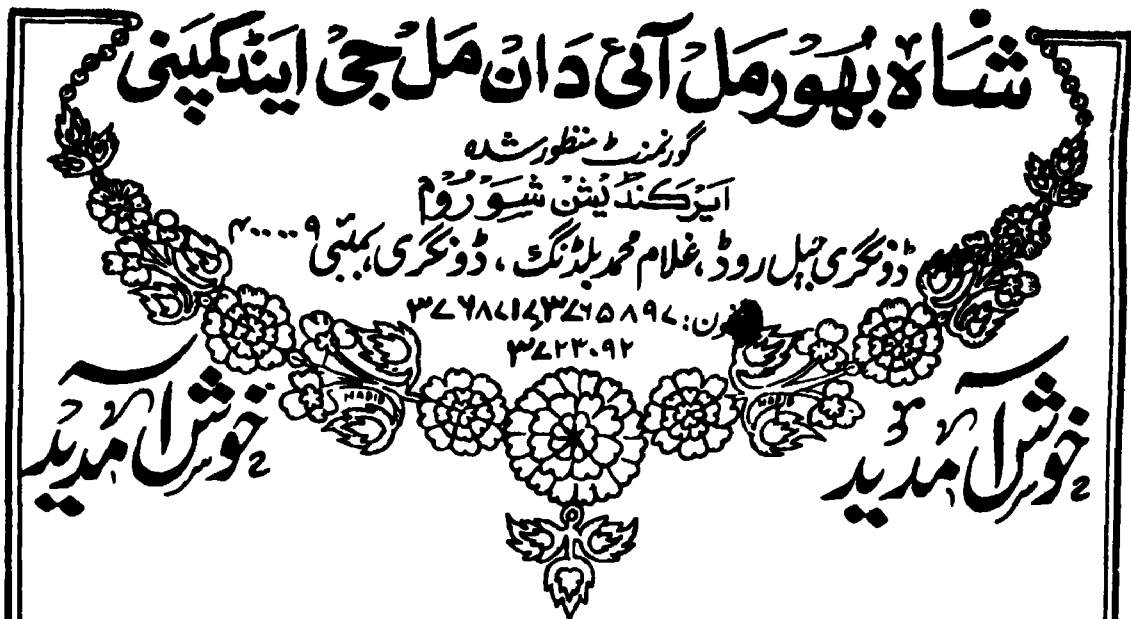 شاہ بھورمل آئی دان مل جی اینڈ کمپنی
گورنمنٹ منظور شدہ
ایرکنڈیشن شو روم
ڈونگری جیل روڈ، غلام محمد بلڈنگ، ڈونگری، بمبئی ۴۰۰۰۰۹
فون: ۳۷۶۵۸۹۷ و ۳۷۶۸۷۱۷
۳۷۲۳۰۹۲
خوش آمدید
خوش آمدید
HABIB
HABIB